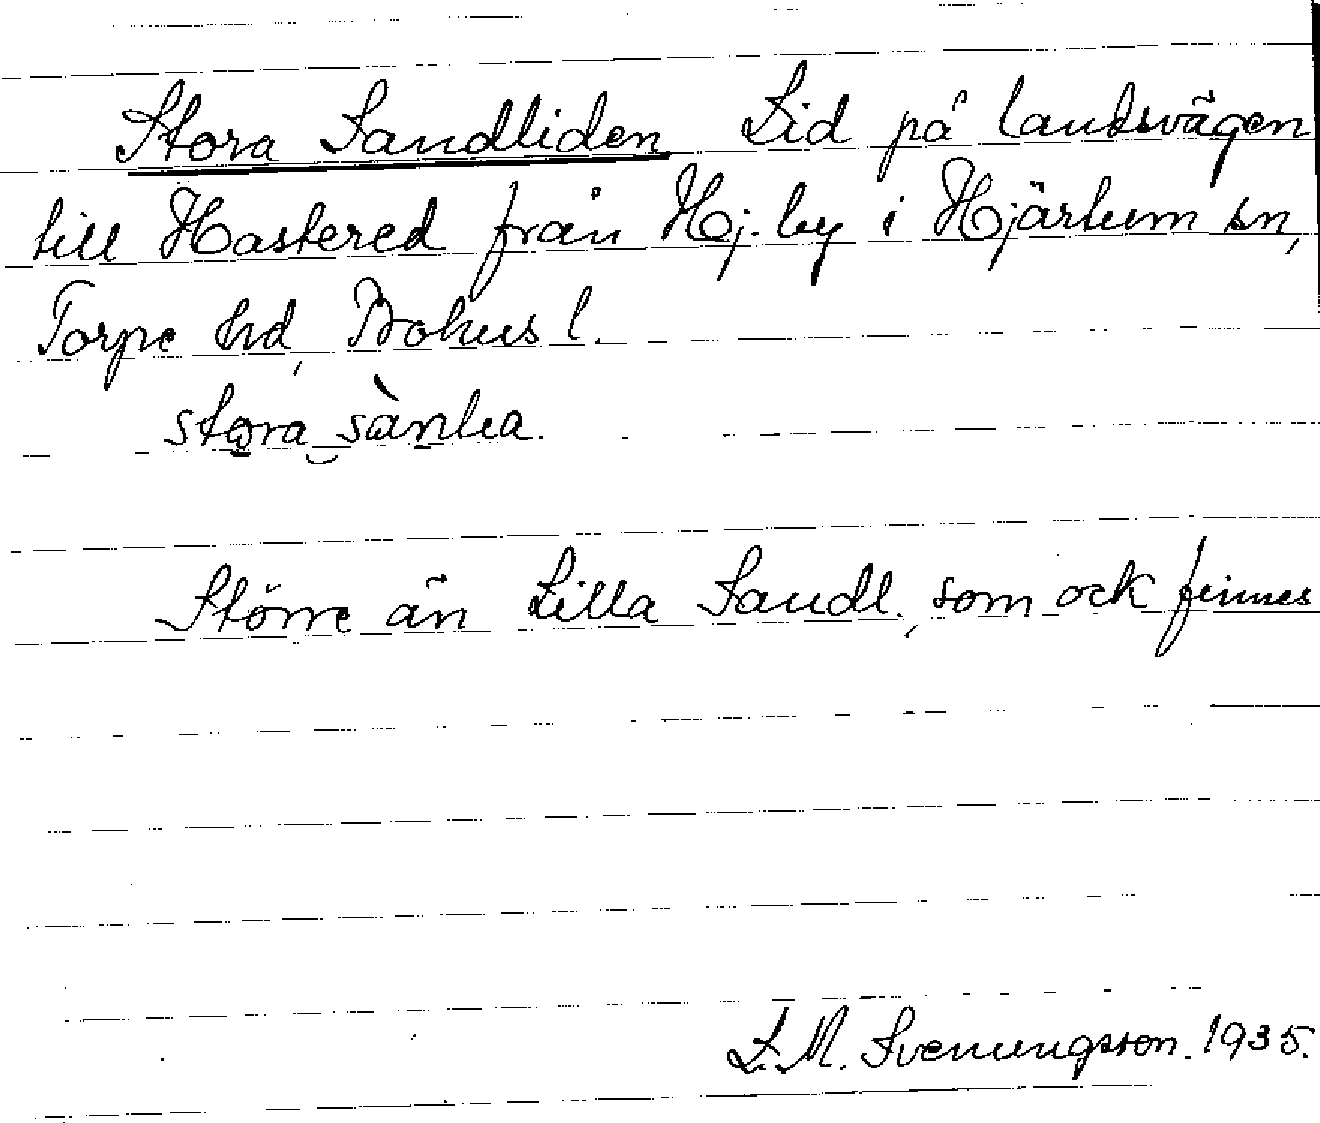 Stora Sandliden Lid på landsvägen
till Hastered från Hj. by i Hjärtum sn,
Torpe hd, Bohus l.
stora sànlia.
Större än Lilla Sandl., som ock finnes
L.M. Svenungsson. 1935.